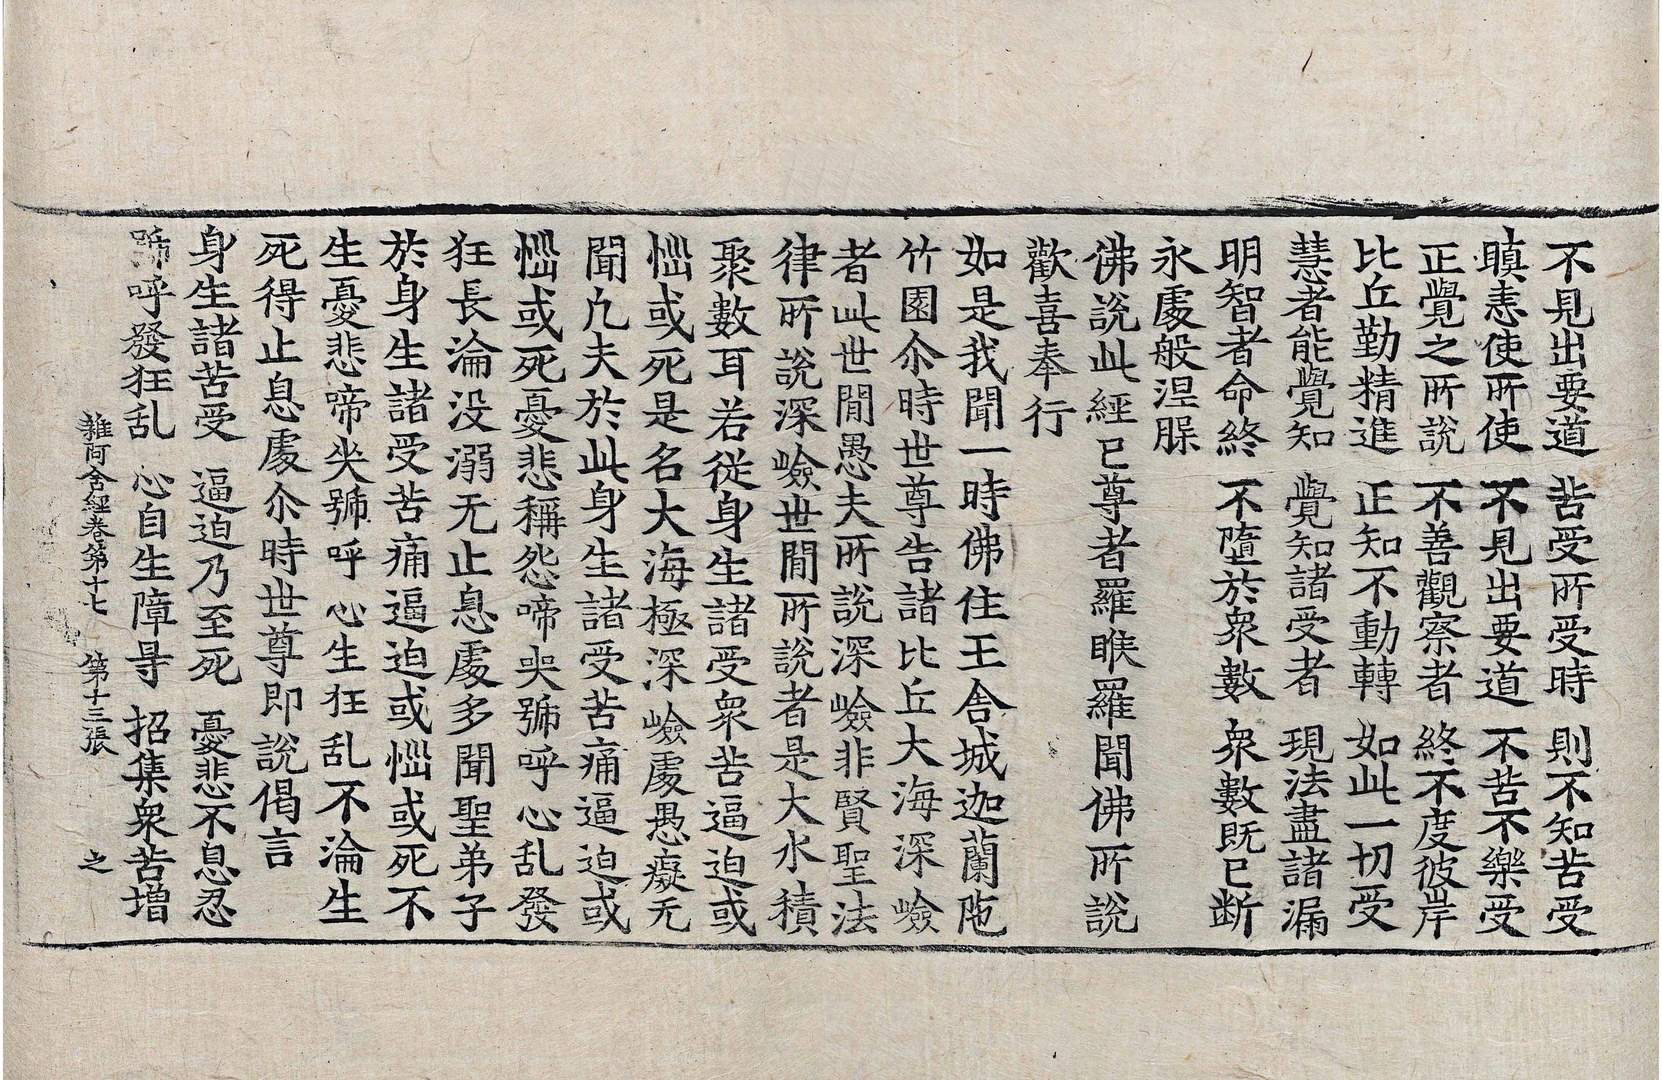 不見出要道 苦受所受時 則不知苦受
瞋恚使所使 不見出要道 不苦不樂受
正覺之所說 不善觀察者 終不度彼岸
比丘勤精進 正知不動轉 如此一切受
慧者能覺知 覺知諸受者 現法盡諸漏
明智者命終 不墮於衆數 衆數既已斷
永處般涅槃
佛說此經已尊者羅睺羅聞佛所說
歡喜奉行
如是我聞一時佛住王舍城迦蘭陁
竹園尒時世尊告諸比丘大海深嶮
者此世閒愚夫所說深嶮非賢聖法
律所說深嶮世閒所說者是大水積
聚數耳若從身生諸受衆苦逼迫或
惱或死是名大海極深嶮處愚癡无
聞凡夫於此身生諸受苦痛逼迫或
惱或死憂悲稱怨啼哭號呼心乱發
狂長淪没溺无止息處多聞聖弟子
於身生諸受苦痛逼迫或惱或死不
生憂悲啼哭號呼心生狂乱不淪生
死得止息處尒時世尊即說偈言
身生諸苦受 逼迫乃至死 憂悲不息忍
號呼發狂乱 心自生障㝵 招集衆苦增
雜阿含經卷第十七 第十三張 之